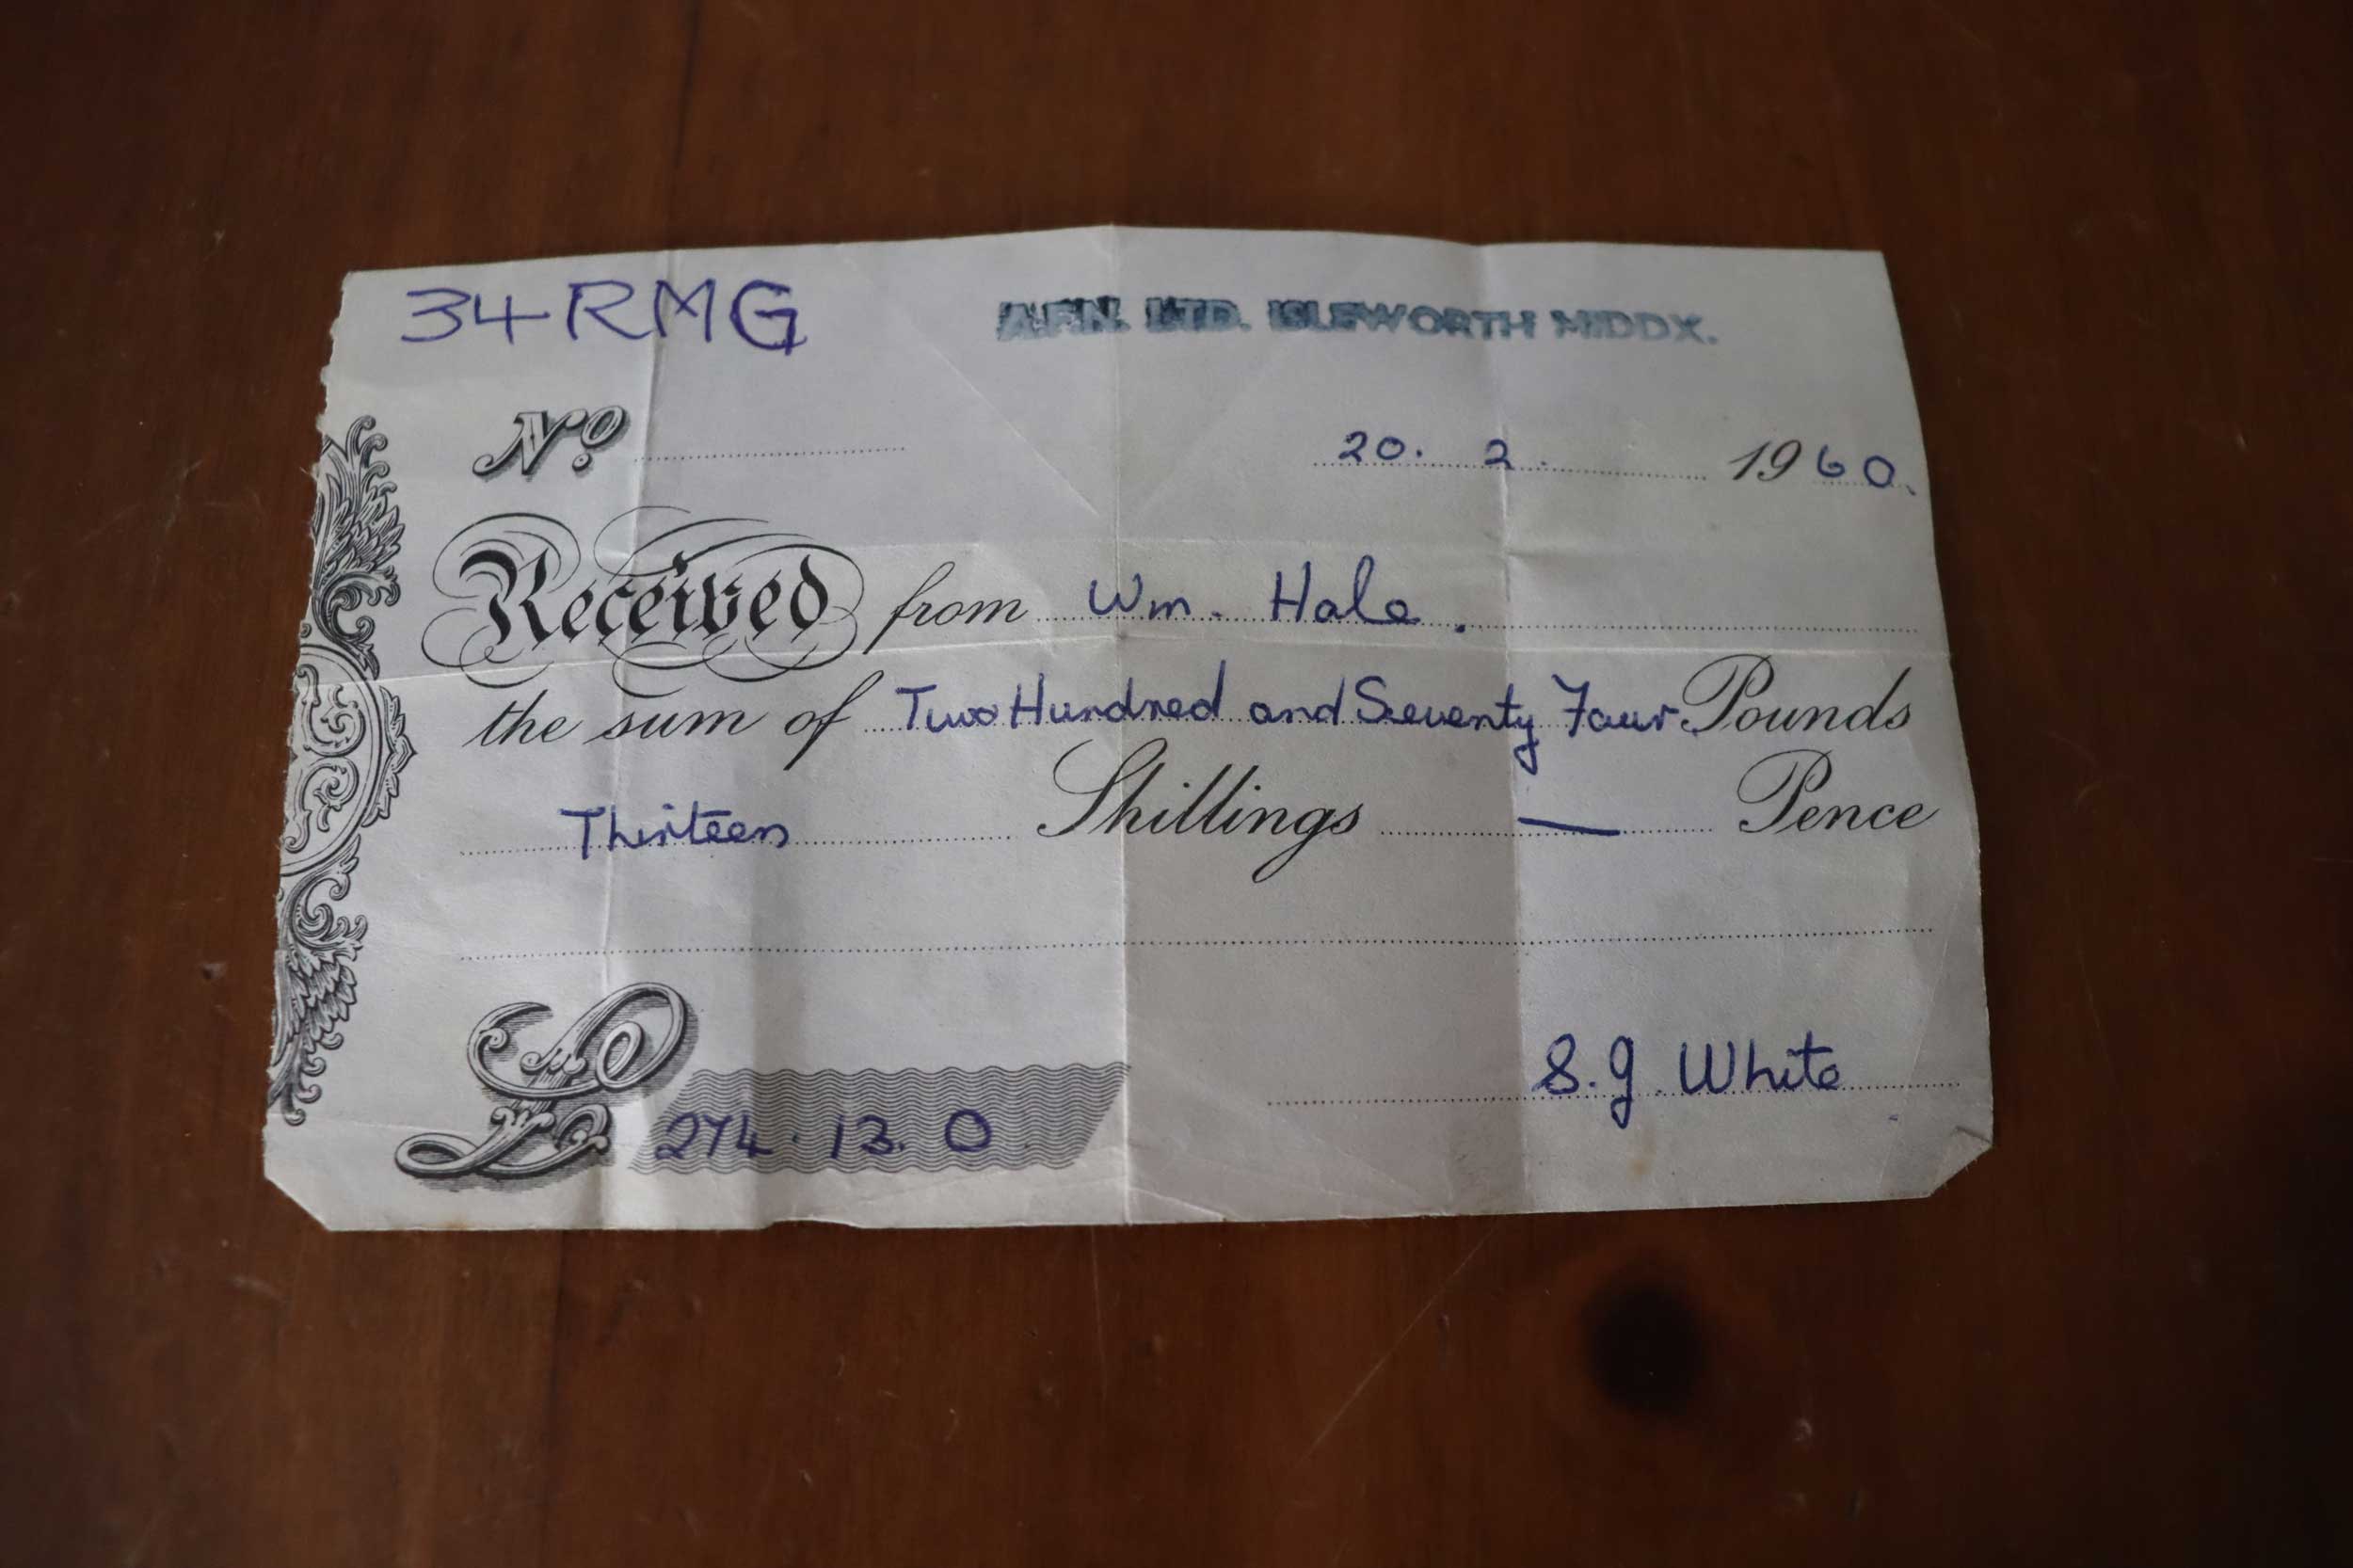 34 RMG
A.F.N. LTD. ISLEWORTH MIDDX.
No 20. 2. 1960.
Received from Wm. Hale.
the sum of Two Hundred and Seventy Four Pounds
Thirteen Shillings — Pence
£ 274. 13. 0
S.G. White